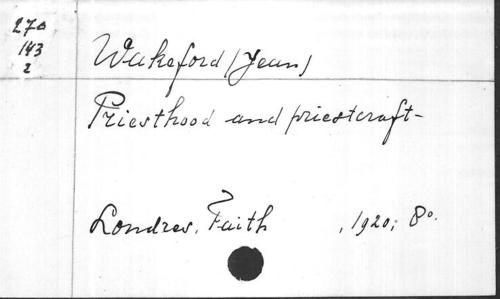 270
143
2
Wakeford (Jean)
Priesthood and priestcraft
Londres, Faith , 1920; 8º.